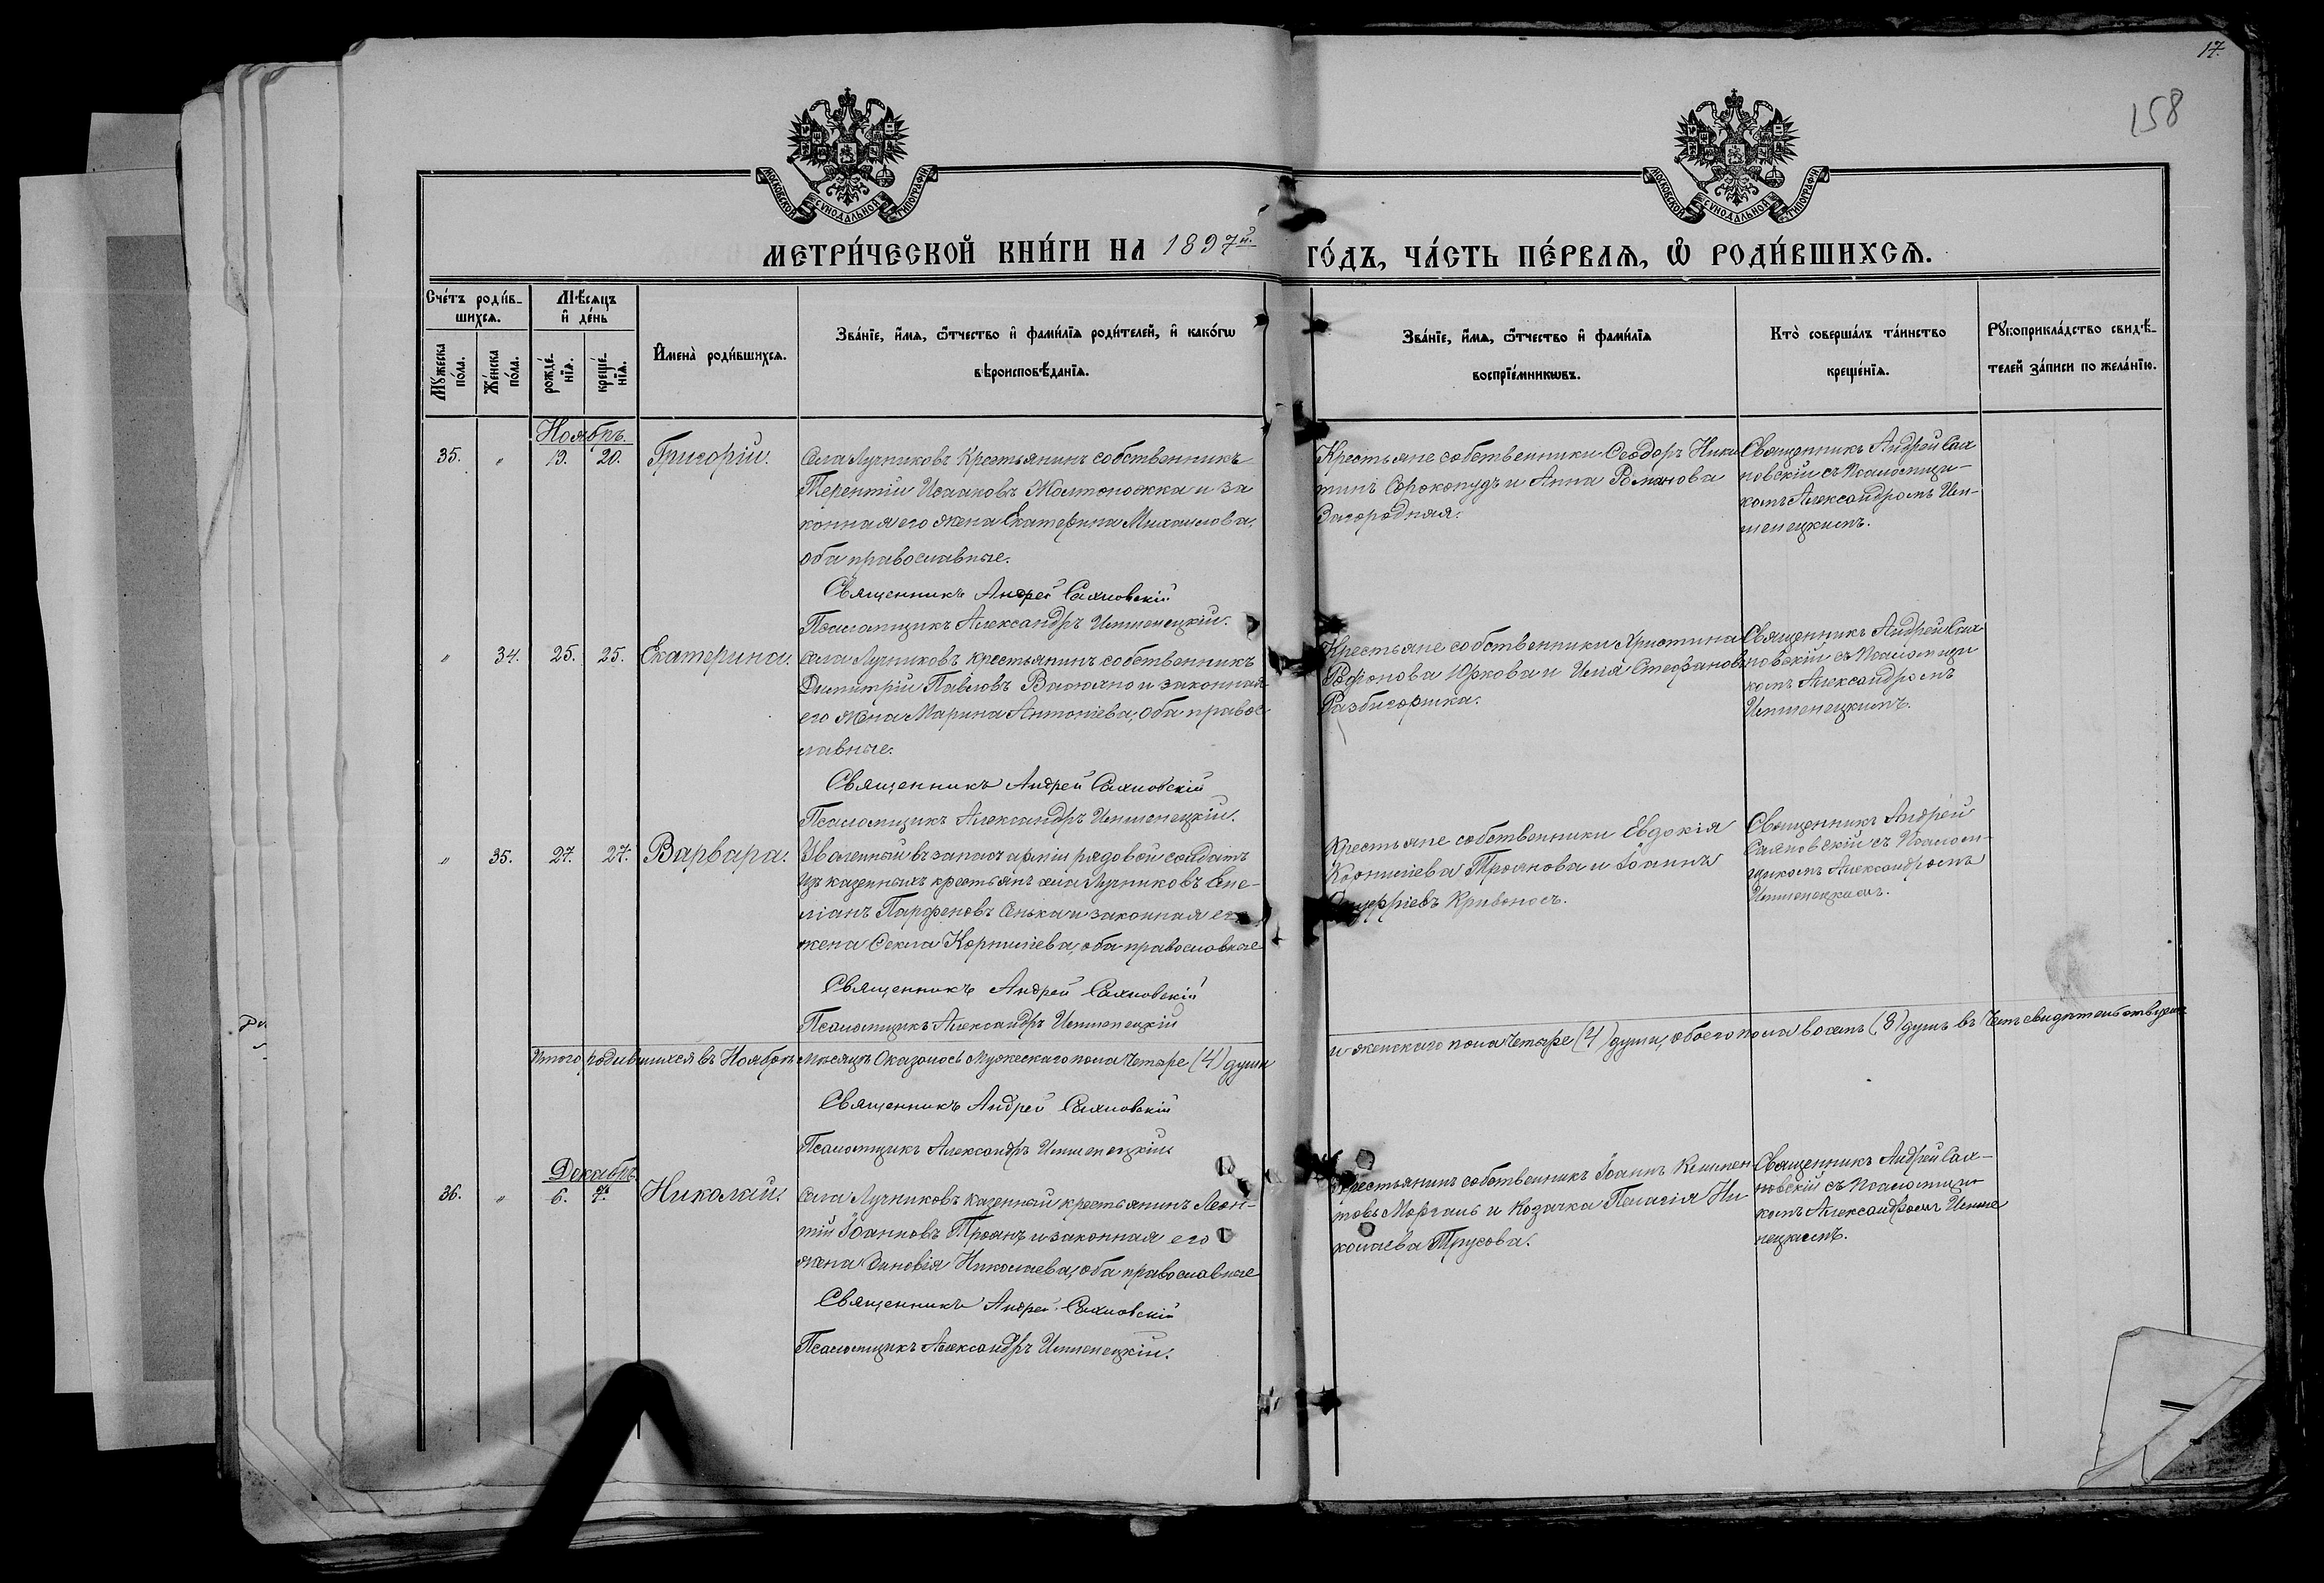 17.
158
МОСКОВСКОЙ СѴНОДАЛЬНОЙ ТИПОГРАФІИ
МОСКОВСКОЙ СѴНОДАЛЬНОЙ ТИПОГРАФІИ
МЕТРИ́ЧЕСКОЙ КНИ́ГИ НА 1897й. ГО́ДЪ, ЧА́СТЬ ПЕ́РВАѦ, Ѡ РОДИ́ВШИХСѦ.
Сче́тъ роди́в-
шихсѧ.
Мꙋ́жеска по́ла.
Же́нска по́ла.
Мѣ́сѧцъ
и҆ де́нь
рожде́-
нїѧ.
креще́-
нїѧ.
И҆мена̀ роди́вшихсѧ.
Зва́нїе, и҆́мѧ, ѻ҆́тчество и҆ фами́лїѧ роди́телей, и҆ како́гѡ
вѣроисповѣ́данїѧ.
Зва́нїе, и҆́мѧ, ѻ҆́тчество и҆ фами́лїѧ
воспрїе́мникѡвъ.
Кто̀ соверша́лъ та́инство
креще́нїѧ.
Рꙋкоприкла́дство свидѣ́-
телей за́писи по жела́нїю.
Ноябрь.
35. " 13. 20. Григорій.
Села Лучниковъ Крестьянинъ собственникъ
Терентій Исааковъ Жолтоножка и за
конная его жена Екатерина Михаилова,
оба православные.
Священникъ Андрей Сахновскій
Псаломщикъ Александръ
Крестьяне собственники Ѳеодоръ Ники
тинъ Сорокопудъ и Анна Романова
Загородняя.
Священникъ Андрей Сах
новскій съ Псаломщи-
комъ Александромъ
" 34. 25. 25. Екатерина.
Села Лучниковъ крестьянинъ собственникъ
Димитрій Павловъ и законная
его жена Марина Антоніева, оба правос
лавные.
Священникъ Андрей Сахновскій
Псаломщикъ Александръ
Крестьяне собственники Христина
Юркова и Илія Стефановъ
Священникъ Андрей Сах
новскій съ Псаломщи
комъ Александромъ
" 35. 27. 27. Варвара.
Уволенный въ запасъ арміи рядовой солдатъ
изъ казенныхъ крестьянъ села Лучниковъ Еме-
ліанъ Парфеновъ Сенька и законная его
жена Ѳекла Корниліева, оба православные
Священникъ Андрей Сахновскій
Псаломщикъ Александръ
Крестьяне собственники Евдокія
Корниліева Троянова и Іоаннъ
Онуфріевъ Кривоносъ.
Священникъ Андрей
Сахновскій съ Псалом-
щикомъ Александромъ
Итого родившихся въ Ноябрѣ Мѣсяцѣ Оказалось Мужескаго пола Четыре (4) души
и женскаго пола Четыре (4) души, обоего пола восемь (8) душъ въ Чемъ свидѣтельствуемъ
Священникъ Андрей Сахновскій
Псаломщикъ Александръ
Декабрь.
36. " 6. 7. Николай.
Села Лучниковъ казенный крестьянинъ Леон-
тій Іоанновъ Троянъ и законная его
жена Зиновія Николаева, оба православные
Священникъ Андрей Сахновскій
Псаломщикъ Александръ
Крестьянинъ собственникъ Іоаннъ Климен
товъ Моргаль и Козачка Пелагія Ни
колаева Трусова.
Священникъ Андрей Сах-
новскій съ Псаломщи
комъ Александромъ